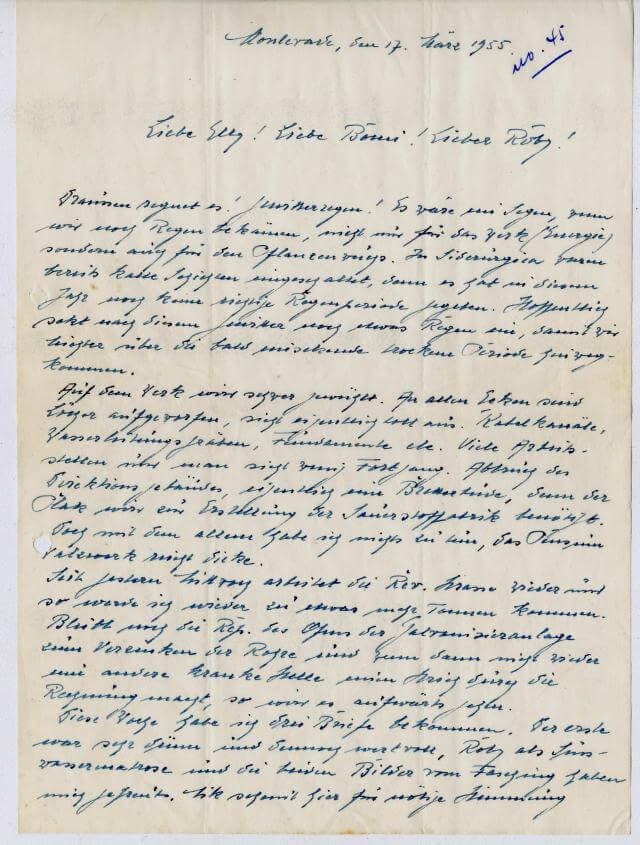 Monlevade, den 17. März 1955
no. 45
Liebe Elly! Liebe Bömi! Lieber Röby!
Draussen regnet es! Gewitterregen! Es wäre ein Segen, wenn
wir noch Regen bekämen, nicht nur für das Werk (Energie)
sondern auch für den Pflanzenwuchs. In Siderúrgica waren
bereits kalte Schichten eingeschaltet, denn es hat in diesem
Jahr noch keine richtige Regenperiode gegeben. Hoffentlich
setzt nach diesem Gewitter noch etwas Regen ein, damit wir
leichter über die bald einsetzende trockene Periode hinweg-
kommen.
Auf dem Werk wird schwer gewühlt. An allen Ecken sind
Löcher aufgeworfen, sieht eigentlich toll aus. Kabelkanäle,
Wasserleitungsgraben, Fundamente etc. Viele Arbeits-
stellen und man sieht wenig Fortgang. Abbruch des
Direktionsgebäudes, eigentlich eine Bretterbude, denn der
Platz wird zur Erstellung der Sauerstoffabrik benötigt.
Doch mit dem allem habe ich nichts zu tun, das Pensum
Walzwerk reicht dicke.
Seit gestern Mittwoch arbeitet die Rev. Strasse wieder und
so werde ich wieder zu etwas mehr Tonnen kommen.
Bleibt noch die Rep. des Ofens der Galvanisieranlage
zum Verzinken der Rohre und wenn dann nicht wieder
eine andere kranke Stelle einen Strich durch die
Rechnung macht, so wird es aufwärts gehen.
Diese Woche habe ich drei Briefe bekommen. Der erste
war sehr dünn und dennoch wertvoll, Röby als Süss-
wassermatrose und die beiden Bilder vom Fasching haben
mich gefreut. scheint hier für nötige Stimmung